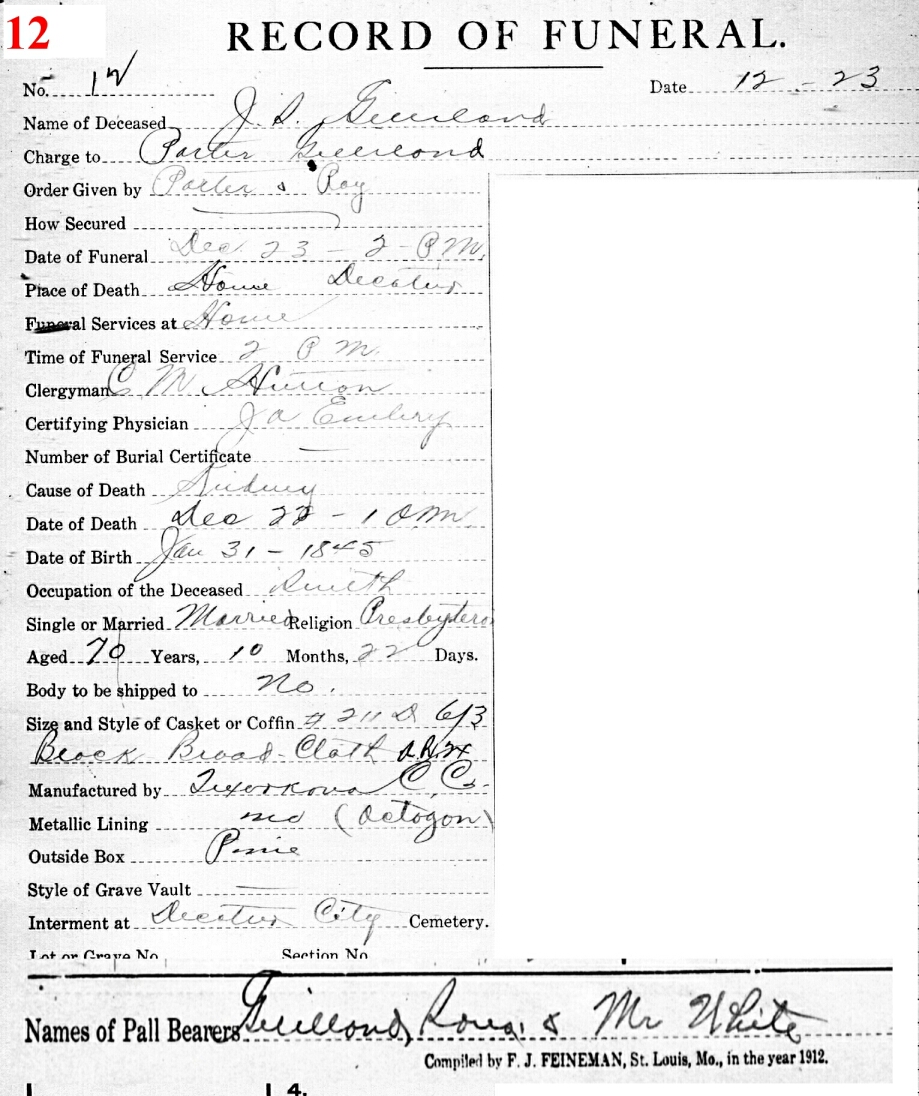 12
RECORD OF FUNERAL.
No. 12 Date 12 - 23
Name of Deceased J. S. Gilliland
Charge to Porter Gilliland
Order Given by Porter & Roy
How Secured
Date of Funeral Dec 23 - 2 - P M.
Place of Death Home Decatur
Funeral Services at Home
Time of Funeral Service 2 P M.
Clergyman C M Hutton
Certifying Physician J A Embry
Number of Burial Certificate —
Cause of Death Kidney
Date of Death Dec 22 - 1 am
Date of Birth Jan 31 - 1845
Occupation of the Deceased Smith
Single or Married Married Religion Presbytero
Aged 70 Years, 10 Months, 22 Days.
Body to be shipped to No.
Size and Style of Casket or Coffin # 211 D 6/3
Black Broad Cloth
Manufactured by Texarkana C. Co.
Metallic Lining no (Octogon)
Outside Box Pine
Style of Grave Vault —
Interment at Decatur City Cemetery.
Lot or Grave No Section No
Names of Pall Bearers Gilliland, & Mr White
Compiled by F. J. FEINEMAN, St. Louis, Mo., in the year 1912.
4.